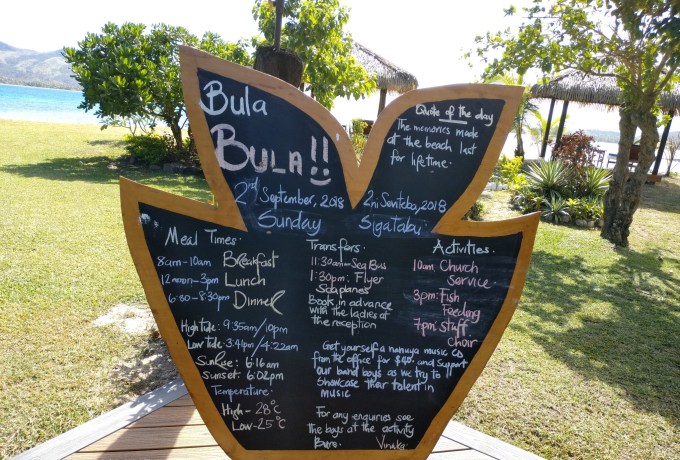 Bula
BULA!!
2nd September, 2018
Sunday
Quote of the day
The memories made
at the beach last
for lifetime.
2ni Seviteba, 2018
Sigatabu
Meal Times:
8am-10am Breakfast
12noon-3pm Lunch
6:30-8:30pm Dinner
High tide: 9:35am/10pm
Low tide: 3:41pm/4:22am
Sunrise: 6:16am
Sunset: 6:02pm
Temperature:
High - 28°C
Low - 25°C
Transfers:
11:30am - Sea Bus
1:30pm: Flyer
Seaplanes
Book in advance
with the ladies at
the reception
Activities:
10am: Church
Service.
3pm: Fish
Feeding
7pm: Staff
Choir
Get yourself a nanuya music CD
from the office for and support
our band boys as we try to
showcase their talent in
music
For any enquiries see
the boys at the activity
Bure. Vinaka.